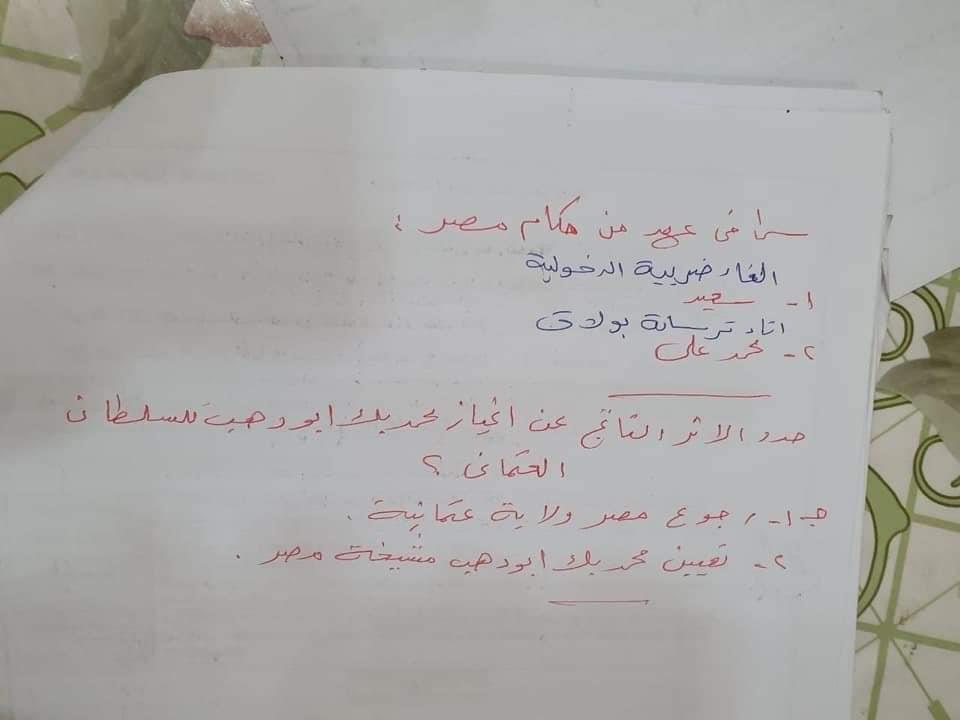 س١ فى عهد من حكام مصر :
الغاء ضريبة الدخولية
١- سعيد
انشاء ترسانة بولاق
٢- محمد على
حدد الاثر الناتج عن انحياز محمد بك ابو دهب للسلطان
العثمانى ؟
جـ ١- رجوع مصر ولاية عثمانية .
٢- تعيين محمد بك ابو دهب مشيخة مصر .